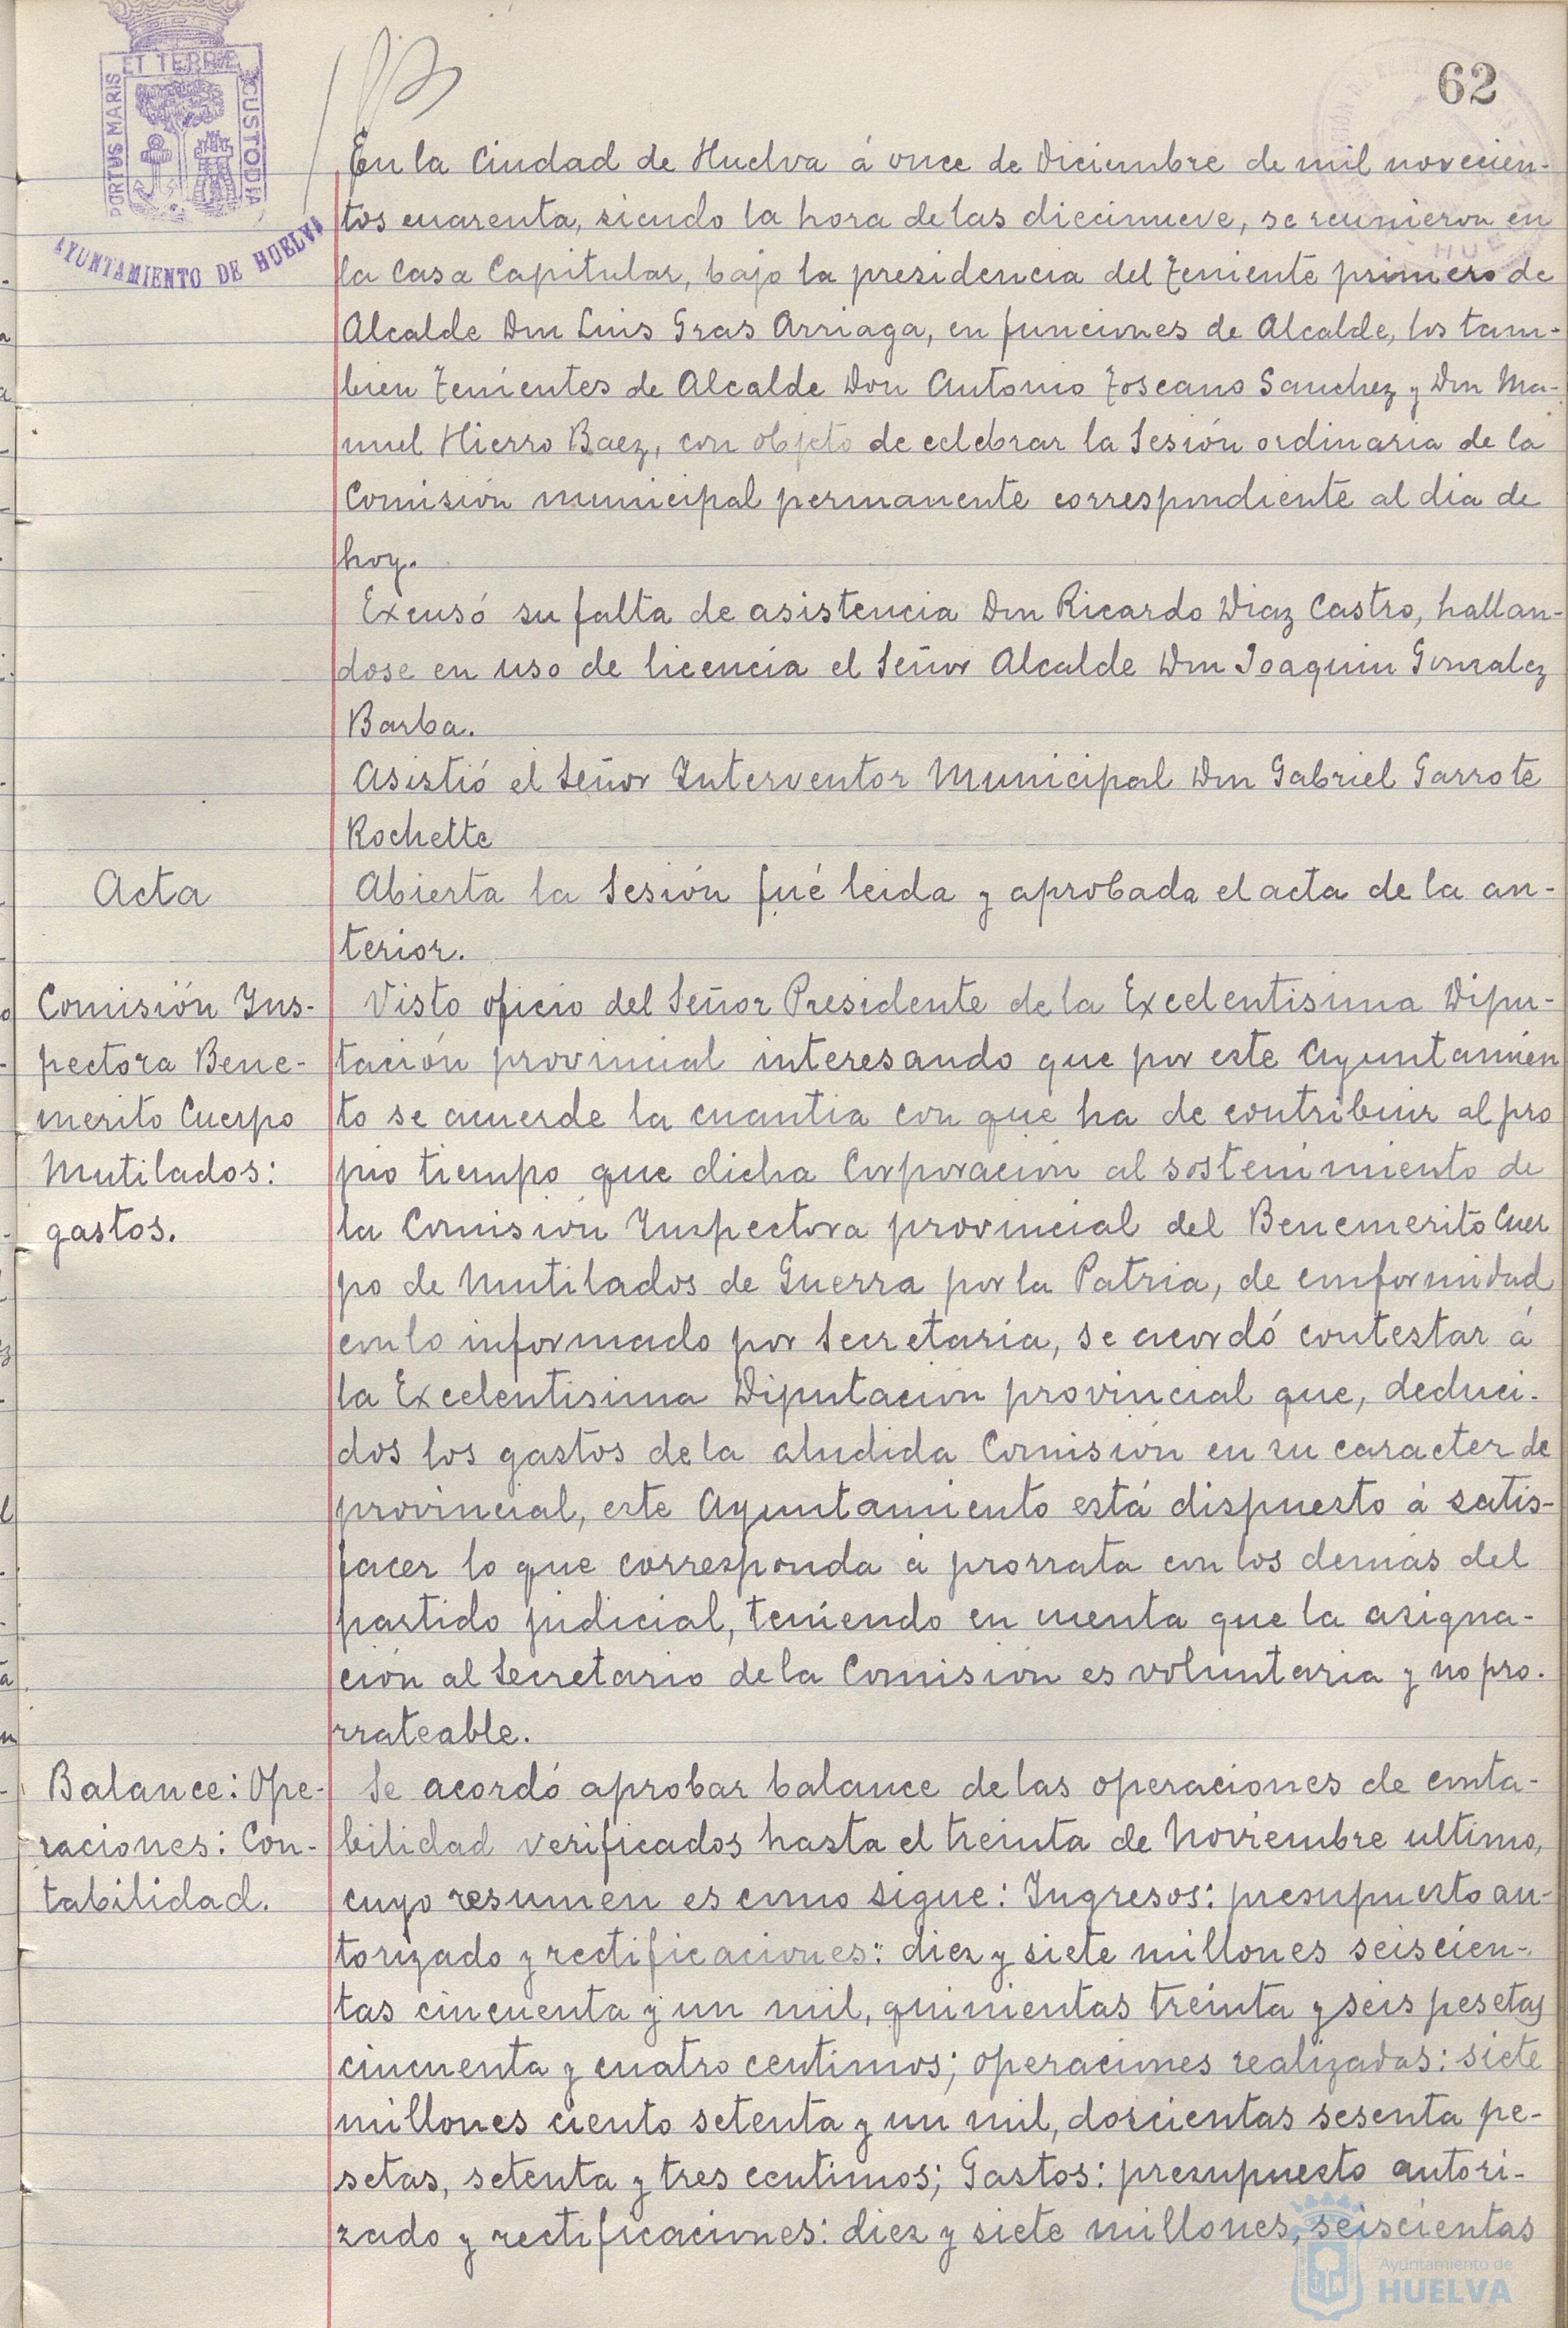 62
PORTUS MARIS ET TERRAE CUSTODIA
AYUNTAMIENTO DE HUELVA
En la Ciudad de Huelva á once de Diciembre de mil novecien-
tos cuarenta, siendo la hora de las diecinueve, se reunieron en
la Casa Capitular, bajo la presidencia del Teniente primero de
Alcalde Don Luis Gras Arriaga, en funciones de Alcalde, los tam-
bien Tenientes de Alcalde Don Antonio Toscano Sanchez y Don Ma-
nuel Hierro Baez, con objeto de celebrar la Sesión ordinaria de la
Comisión municipal permanente correspondiente al dia de
hoy.
Excusó su falta de asistencia Don Ricardo Diaz Castro, hallan-
dose en uso de licencia el Señor Alcalde Don Joaquin Gonzalez
Barba.
Asistió el Señor Interventor Municipal Don Gabriel Garrote
Rochette
Acta
Abierta la Sesión fué leida y aprobada el acta de la an-
terior.
Comisión Ins-
pectora Bene-
merito Cuerpo
Mutilados:
gastos.
Visto oficio del Señor Presidente de la Excelentisima Dipu-
tación provincial interesando que por este Ayuntamien
to se acuerde la cuantia con que ha de contribuir al pro
pio tiempo que dicha Corporación al sostenimiento de
la Comisión Inspectora provincial del Benemerito Cuer
po de Mutilados de Guerra por la Patria, de conformidad
con lo informado por Secretaría, se acordó contestar á
la Excelentisima Diputación provincial que, deduci-
dos los gastos de la aludida Comisión en su caracter de
provincial, este Ayuntamiento está dispuesto á satis-
facer lo que corresponda á prorrata con los demás del
partido judicial, teniendo en cuenta que la asigna-
ción al Secretario de la Comisión es voluntaria y no pro-
rrateable.
Balance: Ope-
raciones: Con-
tabilidad.
Se acordó aprobar balance de las operaciones de conta-
bilidad verificados hasta el treinta de Noviembre ultimo,
cuyo resumen es como sigue: Ingresos: presupuesto au-
torizado y rectificaciones: diez y siete millones seiscien-
tas cincuenta y un mil, quinientas treinta y seis pesetas
cincuenta y cuatro centimos; operaciones realizadas: siete
millones ciento setenta y un mil, doscientas sesenta pe-
setas, setenta y tres centimos; Gastos: presupuesto autori-
zado y rectificaciones: diez y siete millones, seiscientas
Ayuntamiento de
HUELVA